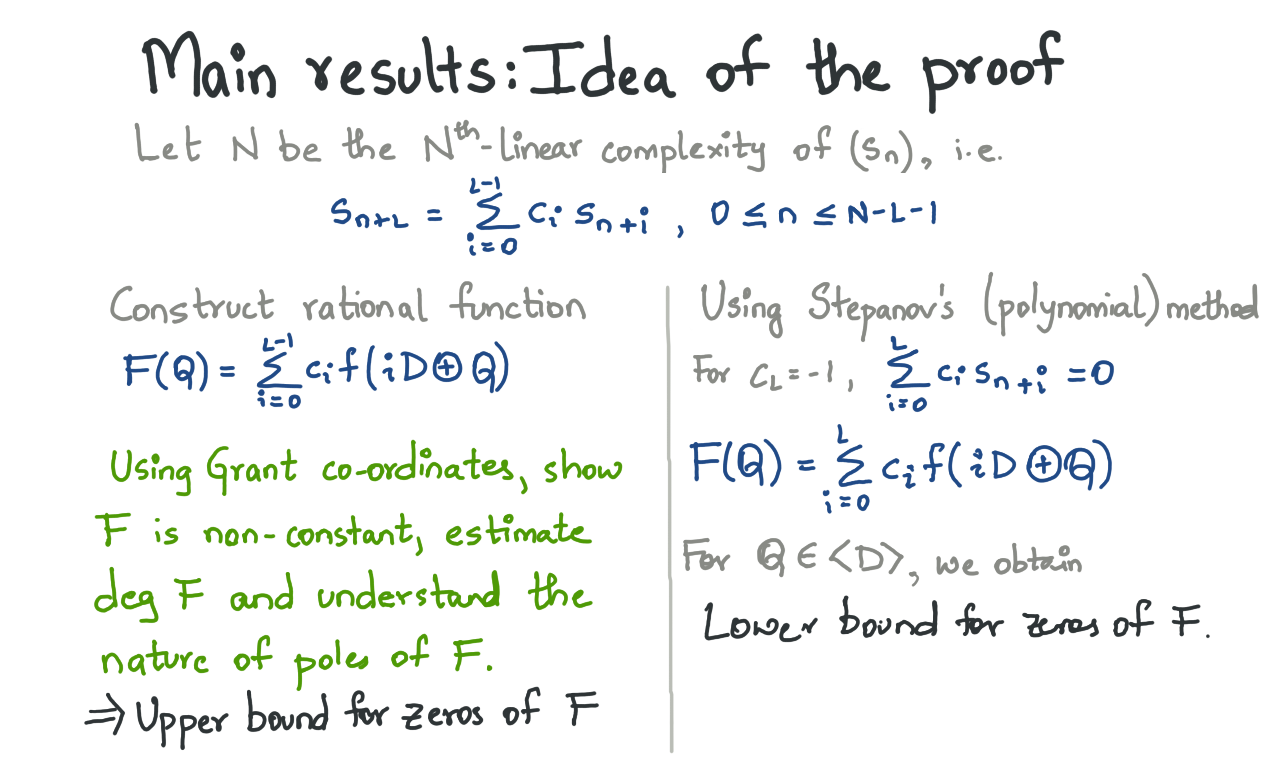 Main results: Idea of the proof
Let N be the Nᵗʰ-linear complexity of (sₙ), i.e.
s_{n+L} = \sum_{i=0}^{L-1} c_i s_{n+i} , 0 ≤ n ≤ N-L-1
Construct rational function
F(Q) = \sum_{i=0}^{L-1} c_i f(iD ⊕ Q)
Using Grant co-ordinates, show
F is non-constant, estimate
deg F and understand the
nature of poles of F.
⇒ Upper bound for zeros of F
Using Stepanov's (polynomial) method
For c_L = -1, \sum_{i=0}^{L} c_i s_{n+i} = 0
F(Q) = \sum_{i=0}^{L} c_i f(iD ⊕ Q)
For Q ∈ <D>, we obtain
Lower bound for zeros of F.